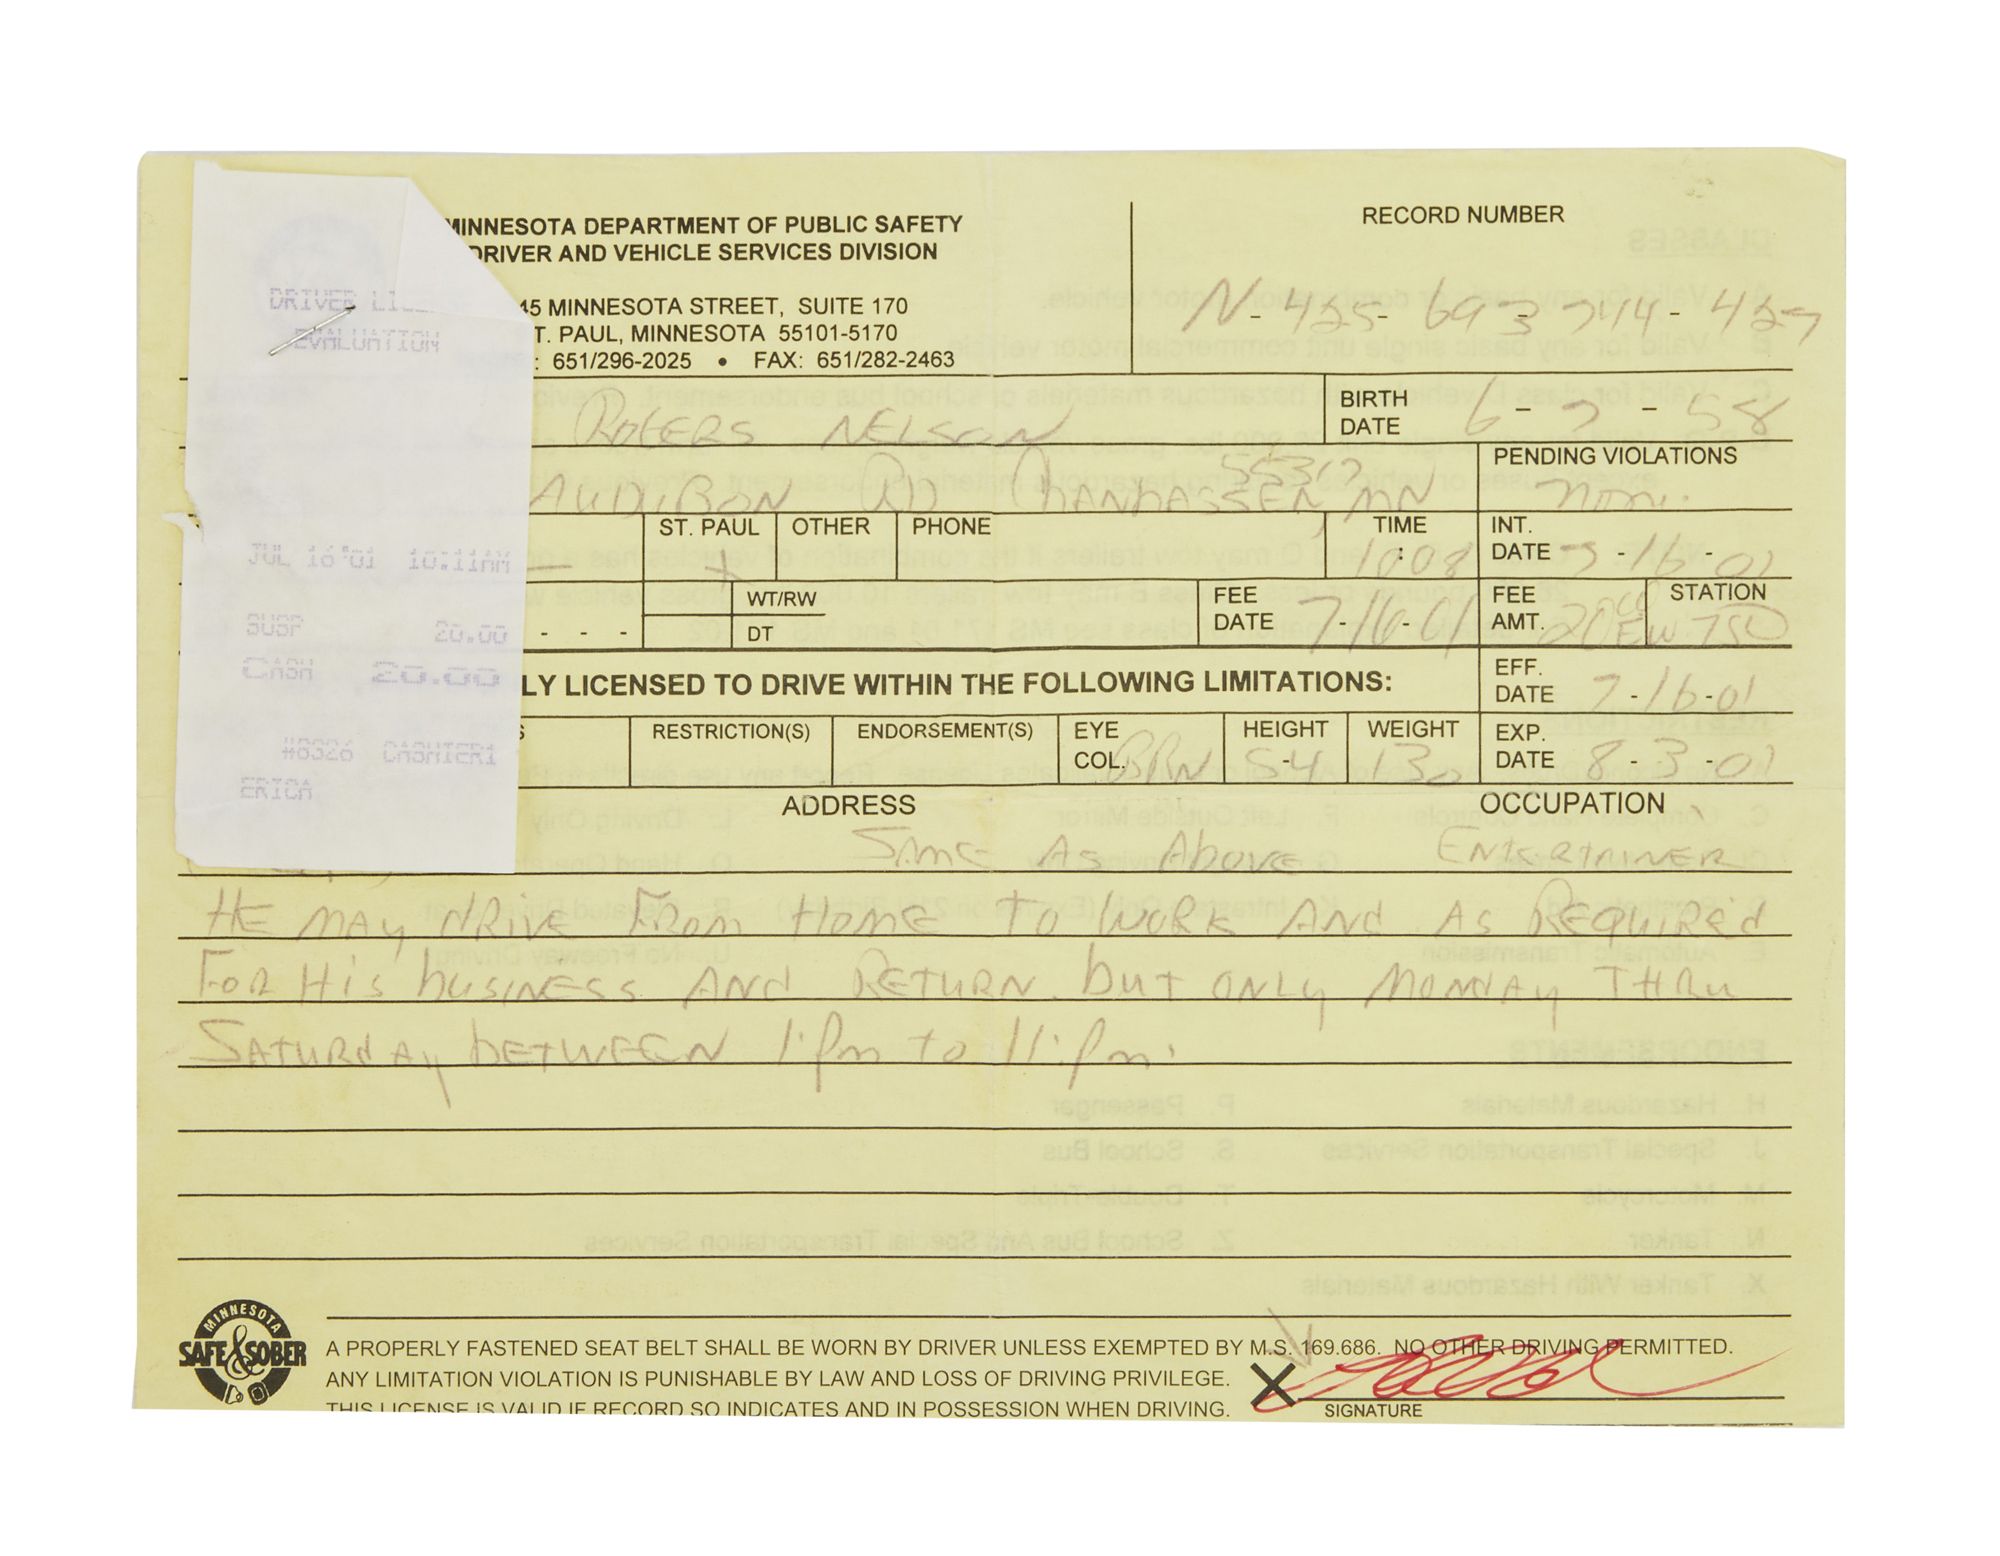 MINNESOTA DEPARTMENT OF PUBLIC SAFETY
DRIVER AND VEHICLE SERVICES DIVISION
45 MINNESOTA STREET, SUITE 170
T. PAUL, MINNESOTA 55101-5170
: 651/296-2025 • FAX: 651/282-2463
RECORD NUMBER
N-425-693-744-427
DRIVER LICE
EVALUATION
JUL 16'01 10:11AM
SUSP 20.00
CASH 20.00
#0326 CASHIER1
ERICA
ROGERS NELSON
BIRTH DATE 6-7-58
AUDIBON RD CHANHASSEN, MN 55317
PENDING VIOLATIONS
ST. PAUL X OTHER PHONE
TIME 10:08
INT. DATE 7-16-01
WT/RW
DT
- - -
FEE DATE 7-16-01
FEE AMT. 20 00
STATION
EFF. DATE 7-16-01
LY LICENSED TO DRIVE WITHIN THE FOLLOWING LIMITATIONS:
S RESTRICTION(S) ENDORSEMENT(S) EYE COL. BRN HEIGHT 54 WEIGHT 130 EXP. DATE 8-3-01
ADDRESS OCCUPATION
SAME AS ABOVE ENTERTAINER
HE MAY DRIVE FROM HOME TO WORK AND AS REQUIRED
FOR HIS BUSINESS AND RETURN. BUT ONLY MONDAY THRU
SATURDAY BETWEEN 1:pm to 11:pm.
MINNESOTA
SAFE & SOBER
A PROPERLY FASTENED SEAT BELT SHALL BE WORN BY DRIVER UNLESS EXEMPTED BY M.S. 169.686. NO OTHER DRIVING PERMITTED.
ANY LIMITATION VIOLATION IS PUNISHABLE BY LAW AND LOSS OF DRIVING PRIVILEGE.
THIS LICENSE IS VALID IF RECORD SO INDICATES AND IN POSSESSION WHEN DRIVING.
X
SIGNATURE